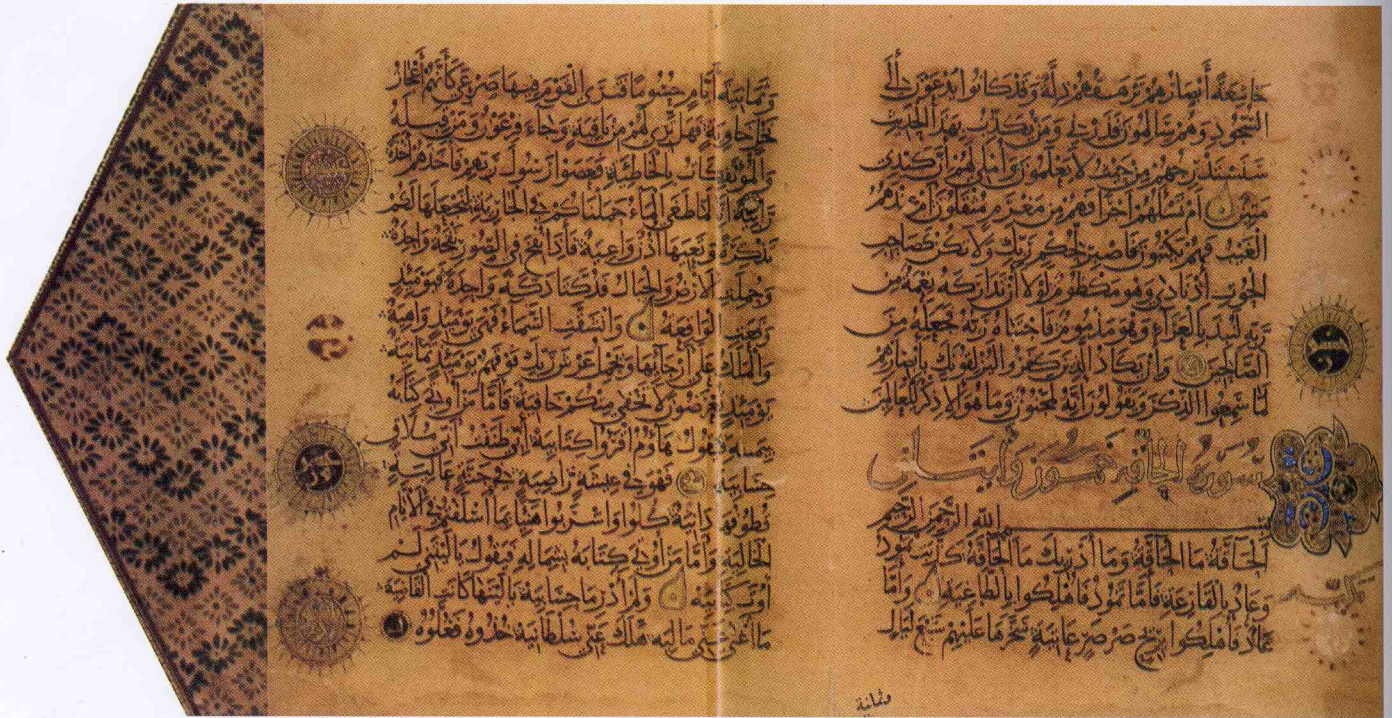 خاشعة أبصارهم ترهقهم ذلة وقد كانوا يدعون إلى
السجود وهم سالمون فذرني ومن يكذب بهذا الحديث
سنستدرجهم من حيث لا يعلمون وأملي لهم إن كيدي
متين أم تسألهم أجرا فهم من مغرم مثقلون أم عندهم
الغيب فهم يكتبون فاصبر لحكم ربك ولا تكن كصاحب
الحوت إذ نادى وهو مكظوم لولا أن تداركه نعمة من
ربه لنبذ بالعراء وهو مذموم فاجتباه ربه فجعله من
الصالحين وإن يكاد الذين كفروا ليزلقونك بأبصارهم
لما سمعوا الذكر ويقولون إنه لمجنون وما هو إلا ذكر للعالمين
سورة الحاقة خمسون وآيتان
بسم الله الرحمن الرحيم
الحاقة ما الحاقة وما أدريك ما الحاقة كذبت ثمود
وعاد بالقارعة فأما ثمود فأهلكوا بالطاغية وأما
عاد فأهلكوا بريح صرصر عاتية سخرها عليهم سبع ليال
وثمانية
وثمانية أيام حسوما فترى القوم فيها صرعى كأنهم أعجاز
نخل خاوية فهل ترى لهم من باقية وجاء فرعون ومن قبله
والمؤتفكات بالخاطئة فعصوا رسول ربهم فأخذهم أخذة
رابية إنا لما طغى الماء حملناكم في الجارية لنجعلها لكم
تذكرة وتعيها أذن واعية فإذا نفخ في الصور نفخة واحدة
وحملت الأرض والجبال فدكتا دكة واحدة فيومئذ
وقعت الواقعة وانشقت السماء فهي يومئذ واهية
والملك على أرجائها ويحمل عرش ربك فوقهم يومئذ ثمانية
يومئذ تعرضون لا تخفى منكم خافية فأما من أوتي كتابه
بيمينه فيقول هاؤم اقرؤا كتابيه إني ظننت أني ملاق
حسابيه فهو في عيشة راضية في جنة عالية
قطوفها دانية كلوا واشربوا هنيئا بما أسلفتم في الأيام
الخالية وأما من أوتي كتابه بشماله فيقول يا ليتني لم
أوت كتابيه ولم أدر ما حسابيه يا ليتها كانت القاضية
ما أغنى عني ماليه هلك عني سلطانيه خذوه فغلوه